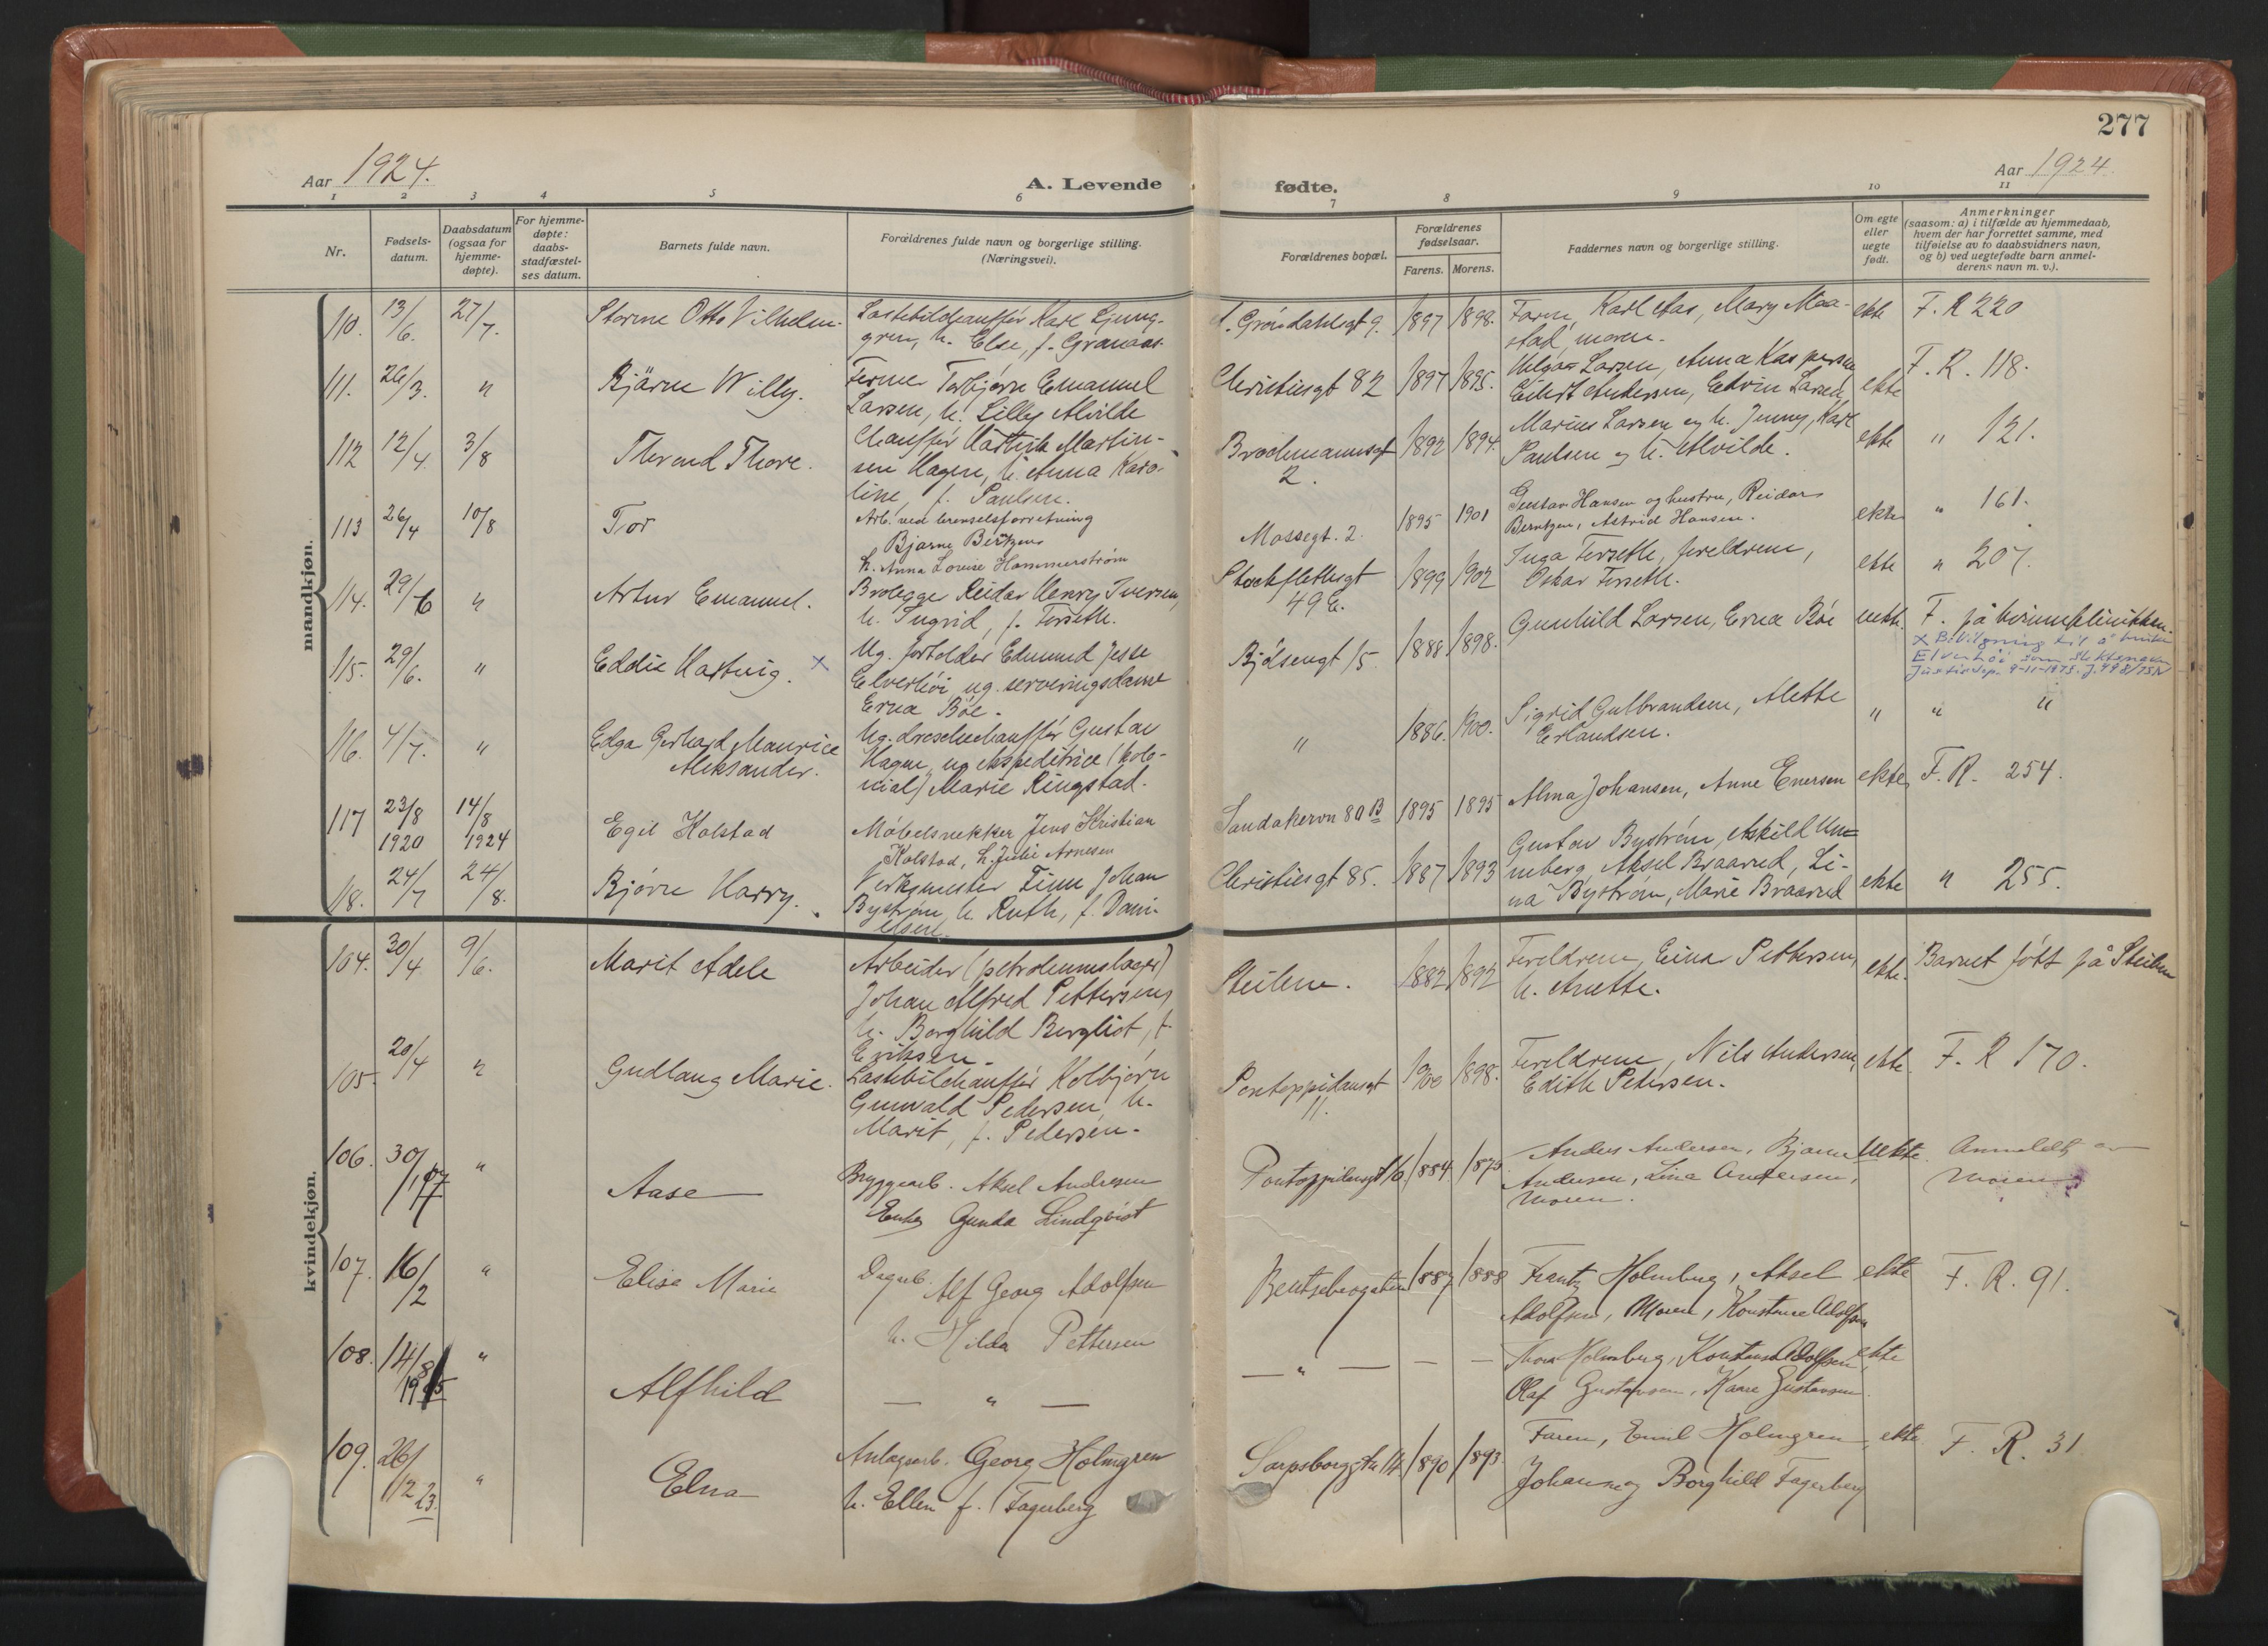 277
Aar 1924.
A. Levende
fødte.
Aar 1924.
1 2 3 4 5 6 7 8 9 10 11
Nr.
Fødsels-
datum.
Daabsdatum
(ogsaa for
hjemme-
døpte).
For hjemme-
døpte:
daabs-
stadfæstel-
ses datum.
Barnets fulde navn.
Forældrenes fulde navn og borgerlige stilling.
(Næringsvei).
Forældrenes bopæl.
Forældrenes
fødselsaar.
Farens. Morens.
Faddernes navn og borgerlige stilling.
Om egte
eller
uegte
født.
Anmerkninger
(saasom: a) i tilfælde av hjemmedaab,
hvem der har forrettet samme, med
tilføielse av to daabsvidners navn,
og b) ved uegtefødte barn anmel-
derens navn m. v.).
mandkjøn.
110. 13/6. 27/7. Storm Otto Vilhelm.
Lastebilchauffør Karl Ljung-
gren, h. Else, f. Granaas.
Grøndahlsgt 9. 1897 1898.
Faren, Karl Aas, Mary Maa-
stad, moren.
ekte F. R 220
111. 26/3. " Bjärne Willy.
Fermer Torbjørn Emanuel
Larsen, h. Lilly Alvilde
Christiesgt 82 1897 1895.
Helga Larsen, Anna Kaspersen
Eilert Andersen, Edvin Larsen,
ekte F. R. 118.
112 12/4. 3/8 Thrond Thore.
Chauffør Hartvik Martin-
sen Hagen, h. Anna Karo-
line, f. Paulsen.
Brochmannsgt
2. 1892 1894.
Marius Larsen og h. Jenny, Karl
Paulsen og h. Alvilde.
ekte " 121.
113 26/4 10/8 Tor
Arb. ved brenselsforretning
Bjarne Berntzen
h. Anna Lovise Hammerstrøm
Mossegt. 2. 1895 1901
Gustav Hansen og hustru, Reidar
Berntzen, Astrid Hansen.
ekte " 161.
114. 29/6 " Artur Emanuel.
Brolegger Reidar Henry Iversen,
h. Ingrid, f. Terseth.
Stockflethsgt
49 E. 1899 1902
Inga Terseth, foreldrene,
Oskar Terseth.
ekte " 207.
115. 29/6. " Eddie Hartvig. x
Ug. forholder Edmund Jesse
Elverhøi, ug. serveringsdame
Erna Bøe.
Bjølsengt 15. 1888 1898.
Gunhild Larsen, Erna Bøe
uekte. F. på kvinneklinikken.
x Bevilgning til å bruke
Elverhøi som slektsnavn
Justisdep. 9-11-1975. J.498/75N
116. 4/7. " Edga Gerhard Maurice
Aleksander.
Ug. droschechauffør Gustav
Hagen, ug ekspeditrice (kolo-
nial) Marie Ringstad.
" 1886. 1900.
Sigrid Gulbrandsen, Alette
Erlandsen.
" " "
117 23/8 1920 14/8 1924 Egil Kolstad
Møbelsnekker Jens Kristian
Kolstad, h. Julie Arnesen
Sandakervn 80 B 1895 1895
Alma Johansen, Anne Enersen
ekte F. R. 254.
118. 24/7 24/8. Bjørn Harry.
Verksmester Finn Johan
Bystrøm, h. Ruth, f. Dani-
elsen.
Christiesgt 85. 1887 1893
Gustav Bystrøm, Askild Un-
neberg, Aksel Braarud, Li-
na Bystrøm, Marie Braarud
ekte " 255.
kvindekjøn.
104. 30/4 9/6. Marit Adele
Arbeider (petroleumslager)
Johan Alfred Pettersen,
h. Borghild Bergliot, f.
Eriksen.
Steilene. 1882 1892
Foreldrene, Einar Pettersen,
h. Anette.
ekte. Barnet født på Steilene
105. 20/4 " Gudlaug Marie.
Lastebilchauffør Kolbjørn
Gunvald Pedersen, h.
Marit, f. Pedersen.
Pontoppidansgt
11. 1900 1898.
Foreldrene, Nils Andersen,
Edith Petersen.
ekte. F. R 170.
106. 30/1 17 " Aase
Bryggearb. Aksel Andresen
Enke Gunda Lindqvist
Pontoppidansgt 10. 1884. 1875.
Anders Andersen, Bjarne
Andersen, Lina Andersen,
Moren.
Uekte. Anmeldt av
Moren
107. 16/2 " Elise Marie
Dagarb. Alf Georg Adolfsen
h. Hilda Pettersen
Bentsebrogaten 1887 1888
Frantz Holmberg, Aksel
Adolfsen, Moren, Konstanse Adolfsen
ekte F. R. 91.
108. 14/8 1915 " Alfhild
— " —
— " — — —
Thora Holmberg, Konstanse Adolfsen
Olaf Gustavsen, Kaare Gustavsen.
ekte
109. 26/12 23. " Elna
Anlægsarb. Georg Holmgren
h. Ellen f. Fagerberg
Sarpsborggtn 14 1890 1893.
Faren, Emil Holmgren,
Johanne og Borghild Fagerberg
ekte F. R. 31